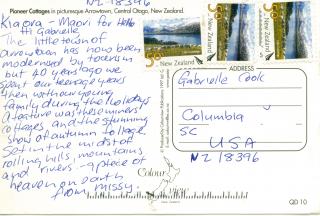 NZ 18396
Pioneer Cottages in picturesque Arrowtown, Central Otago, New Zealand.
Kia ora - Maori for Hello
Hi Gabrielle
The little town of
arrowtown has now been
modernised by tourism
but 40 years ago we
spent our teenage years
then with our young
family during the holidays
A feature was these miners'
cottages and the stunning
show of autumn foliage.
Set in the midst of
rolling hills, mountains
and rivers - a piece of
heaven on earth
from missy.
New Zealand
New Zealand
New Zealand
ADDRESS
Gabrielle Cook
Columbia
SC
USA
NZ 18396
Colour
QD 10